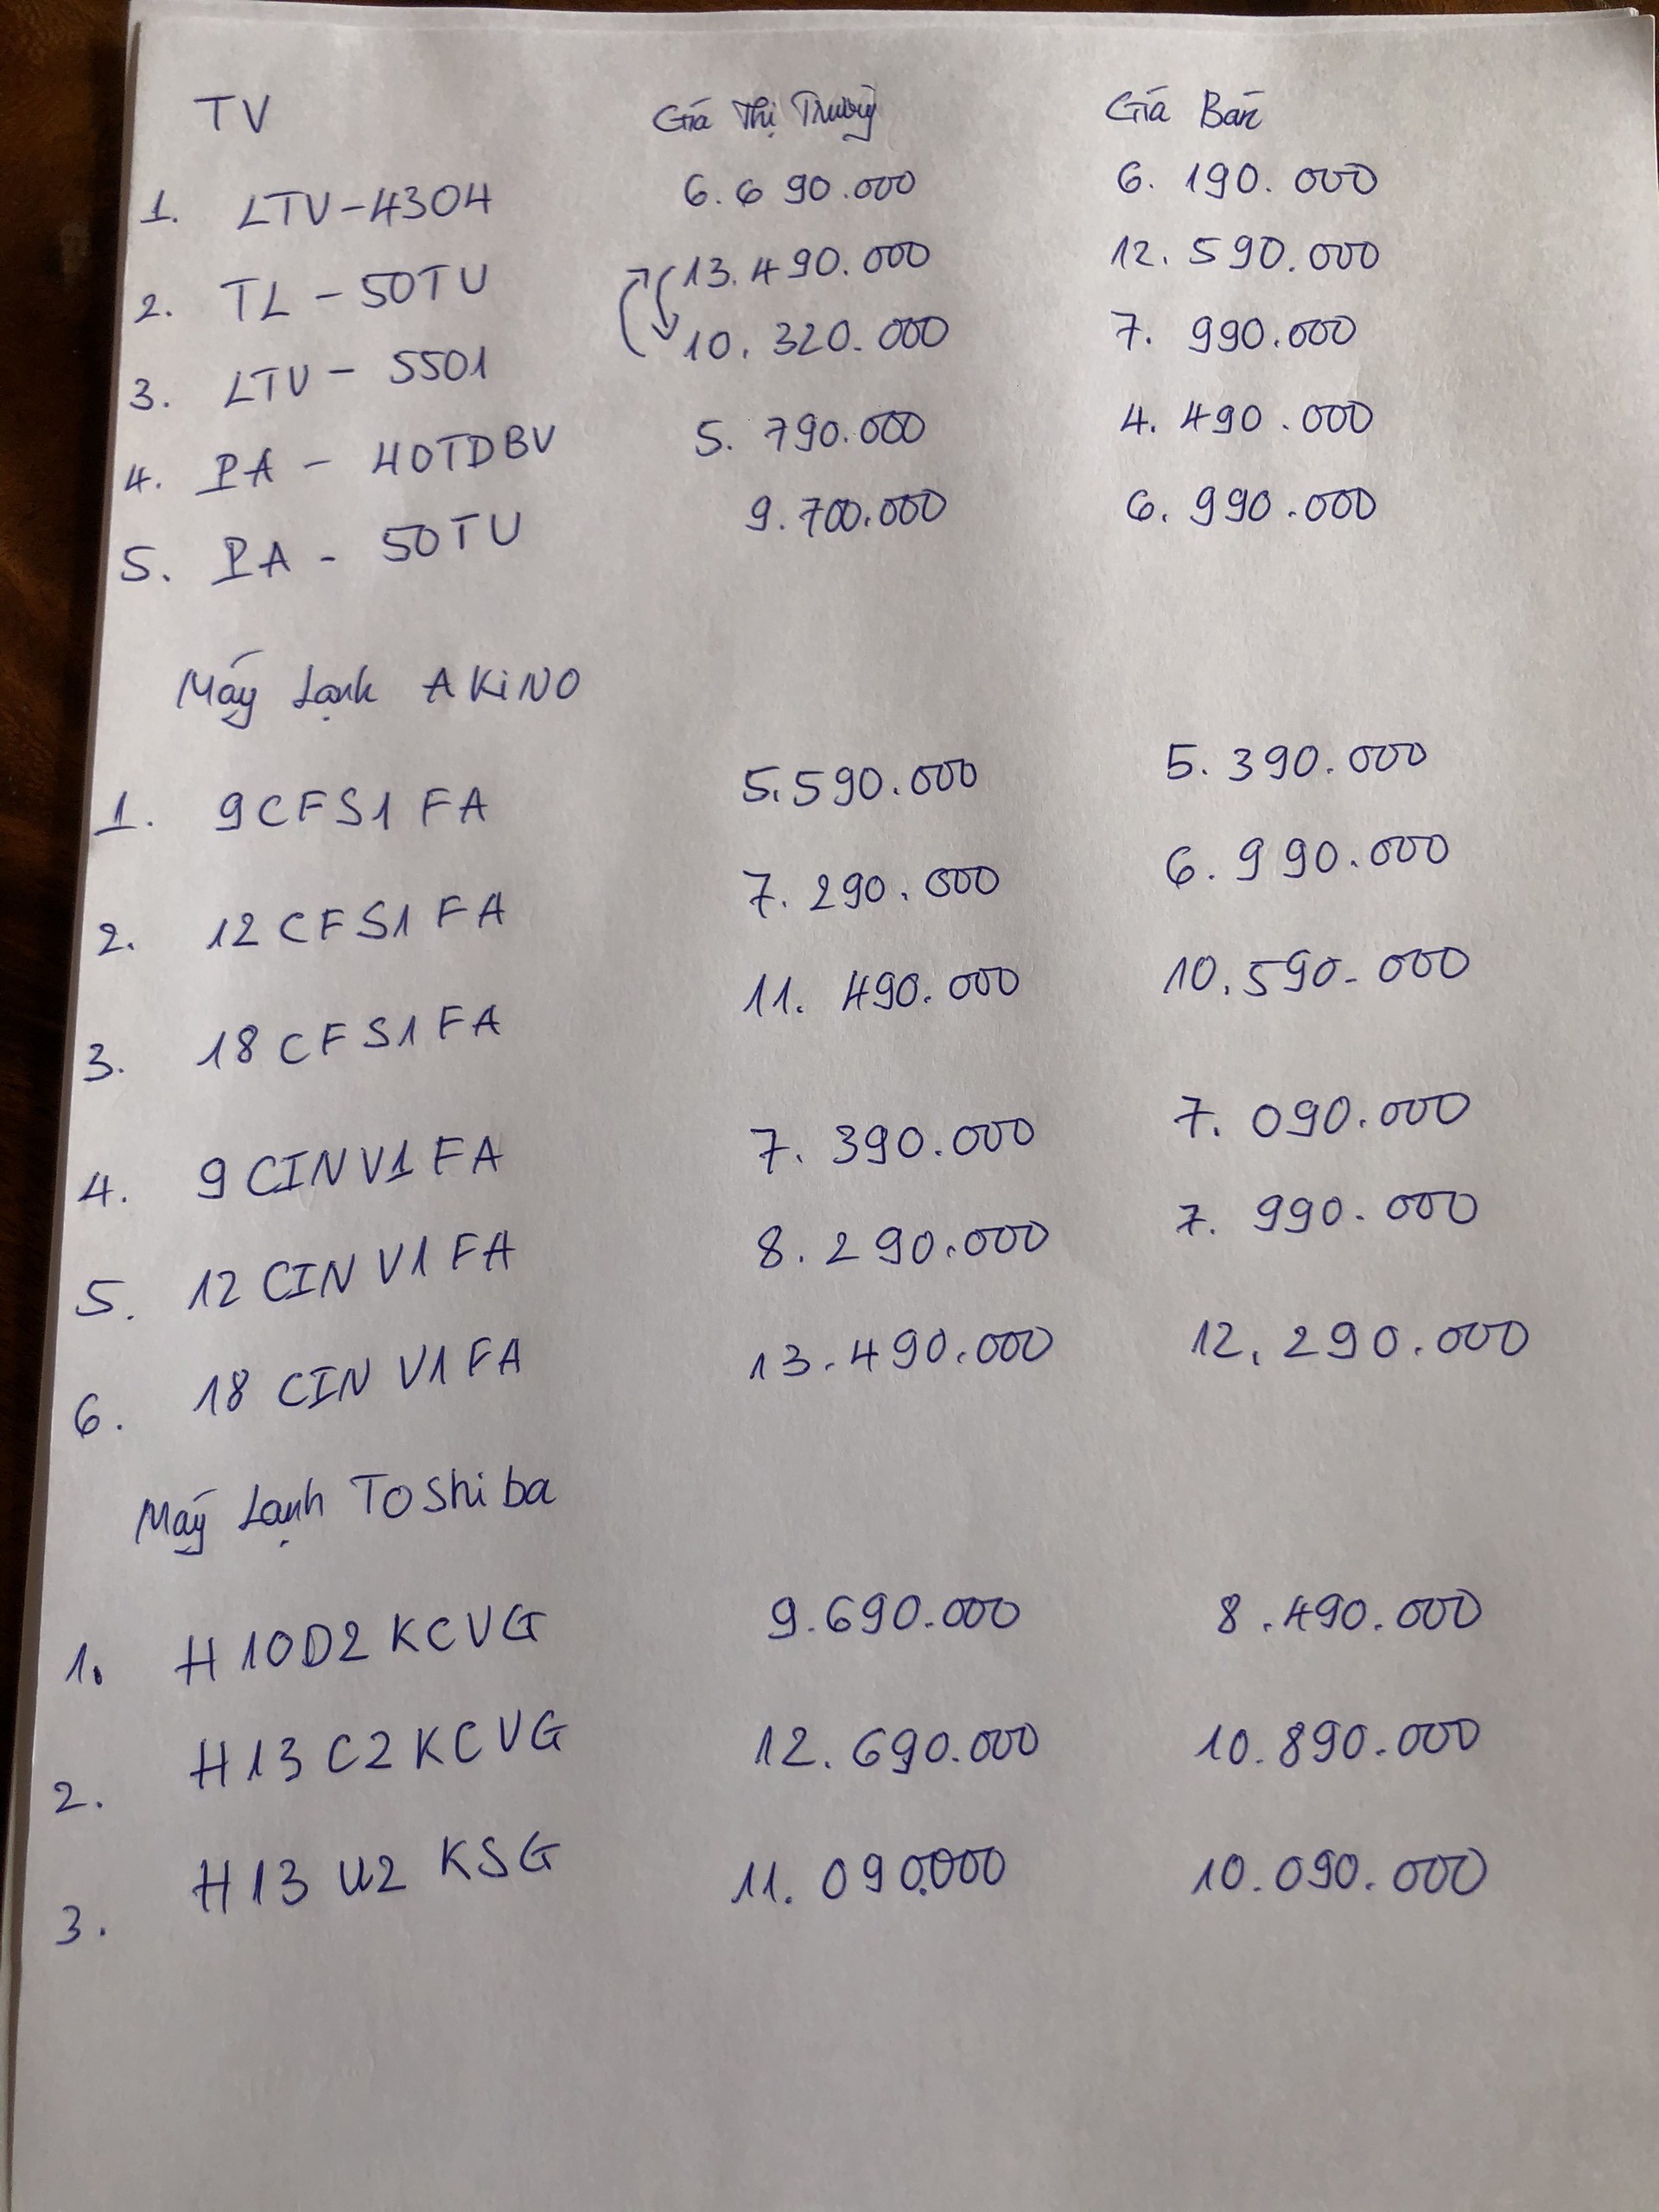 TV Giá Thị Trường Giá Bán
1. LTV-4304 6.690.000 6.190.000
2. TL - 50TU 13.490.000 12.590.000
3. LTV - 5501 10.320.000 7.990.000
4. PA - 40TDBV 5.790.000 4.490.000
5. PA - 50TU 9.700.000 6.990.000
Máy Lạnh AKiNO
1. 9CFS1FA 5.590.000 5.390.000
2. 12CFS1FA 7.290.000 6.990.000
3. 18CFS1FA 11.490.000 10.590.000
4. 9CINV1FA 7.390.000 7.090.000
5. 12CINV1FA 8.290.000 7.990.000
6. 18CINV1FA 13.490.000 12.290.000
Máy Lạnh Toshiba
1. H10D2KCVG 9.690.000 8.490.000
2. H13C2KCVG 12.690.000 10.890.000
3. H13U2KSG 11.090.000 10.090.000